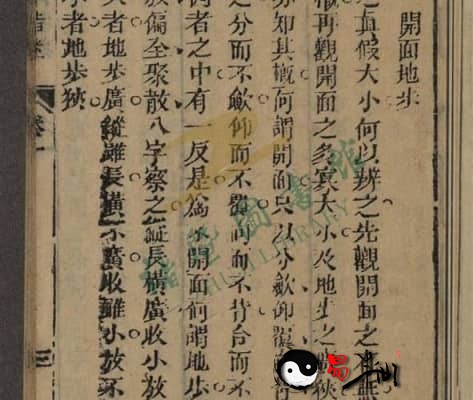 開面地步
之真假大小何以辨之先觀開面之有無
再觀開面之多寡大小及地步之廣狹
亦知其概何謂開面只以分歛仰覆
之分而不歛仰而不覆向而不背合而不
者之中有一反是為不開面何謂地步
放偏全聚散八字察之縱長橫廣收小放
大者地步廣縱雖長橫不廣收雖小放不
者地步狹
卷一
三